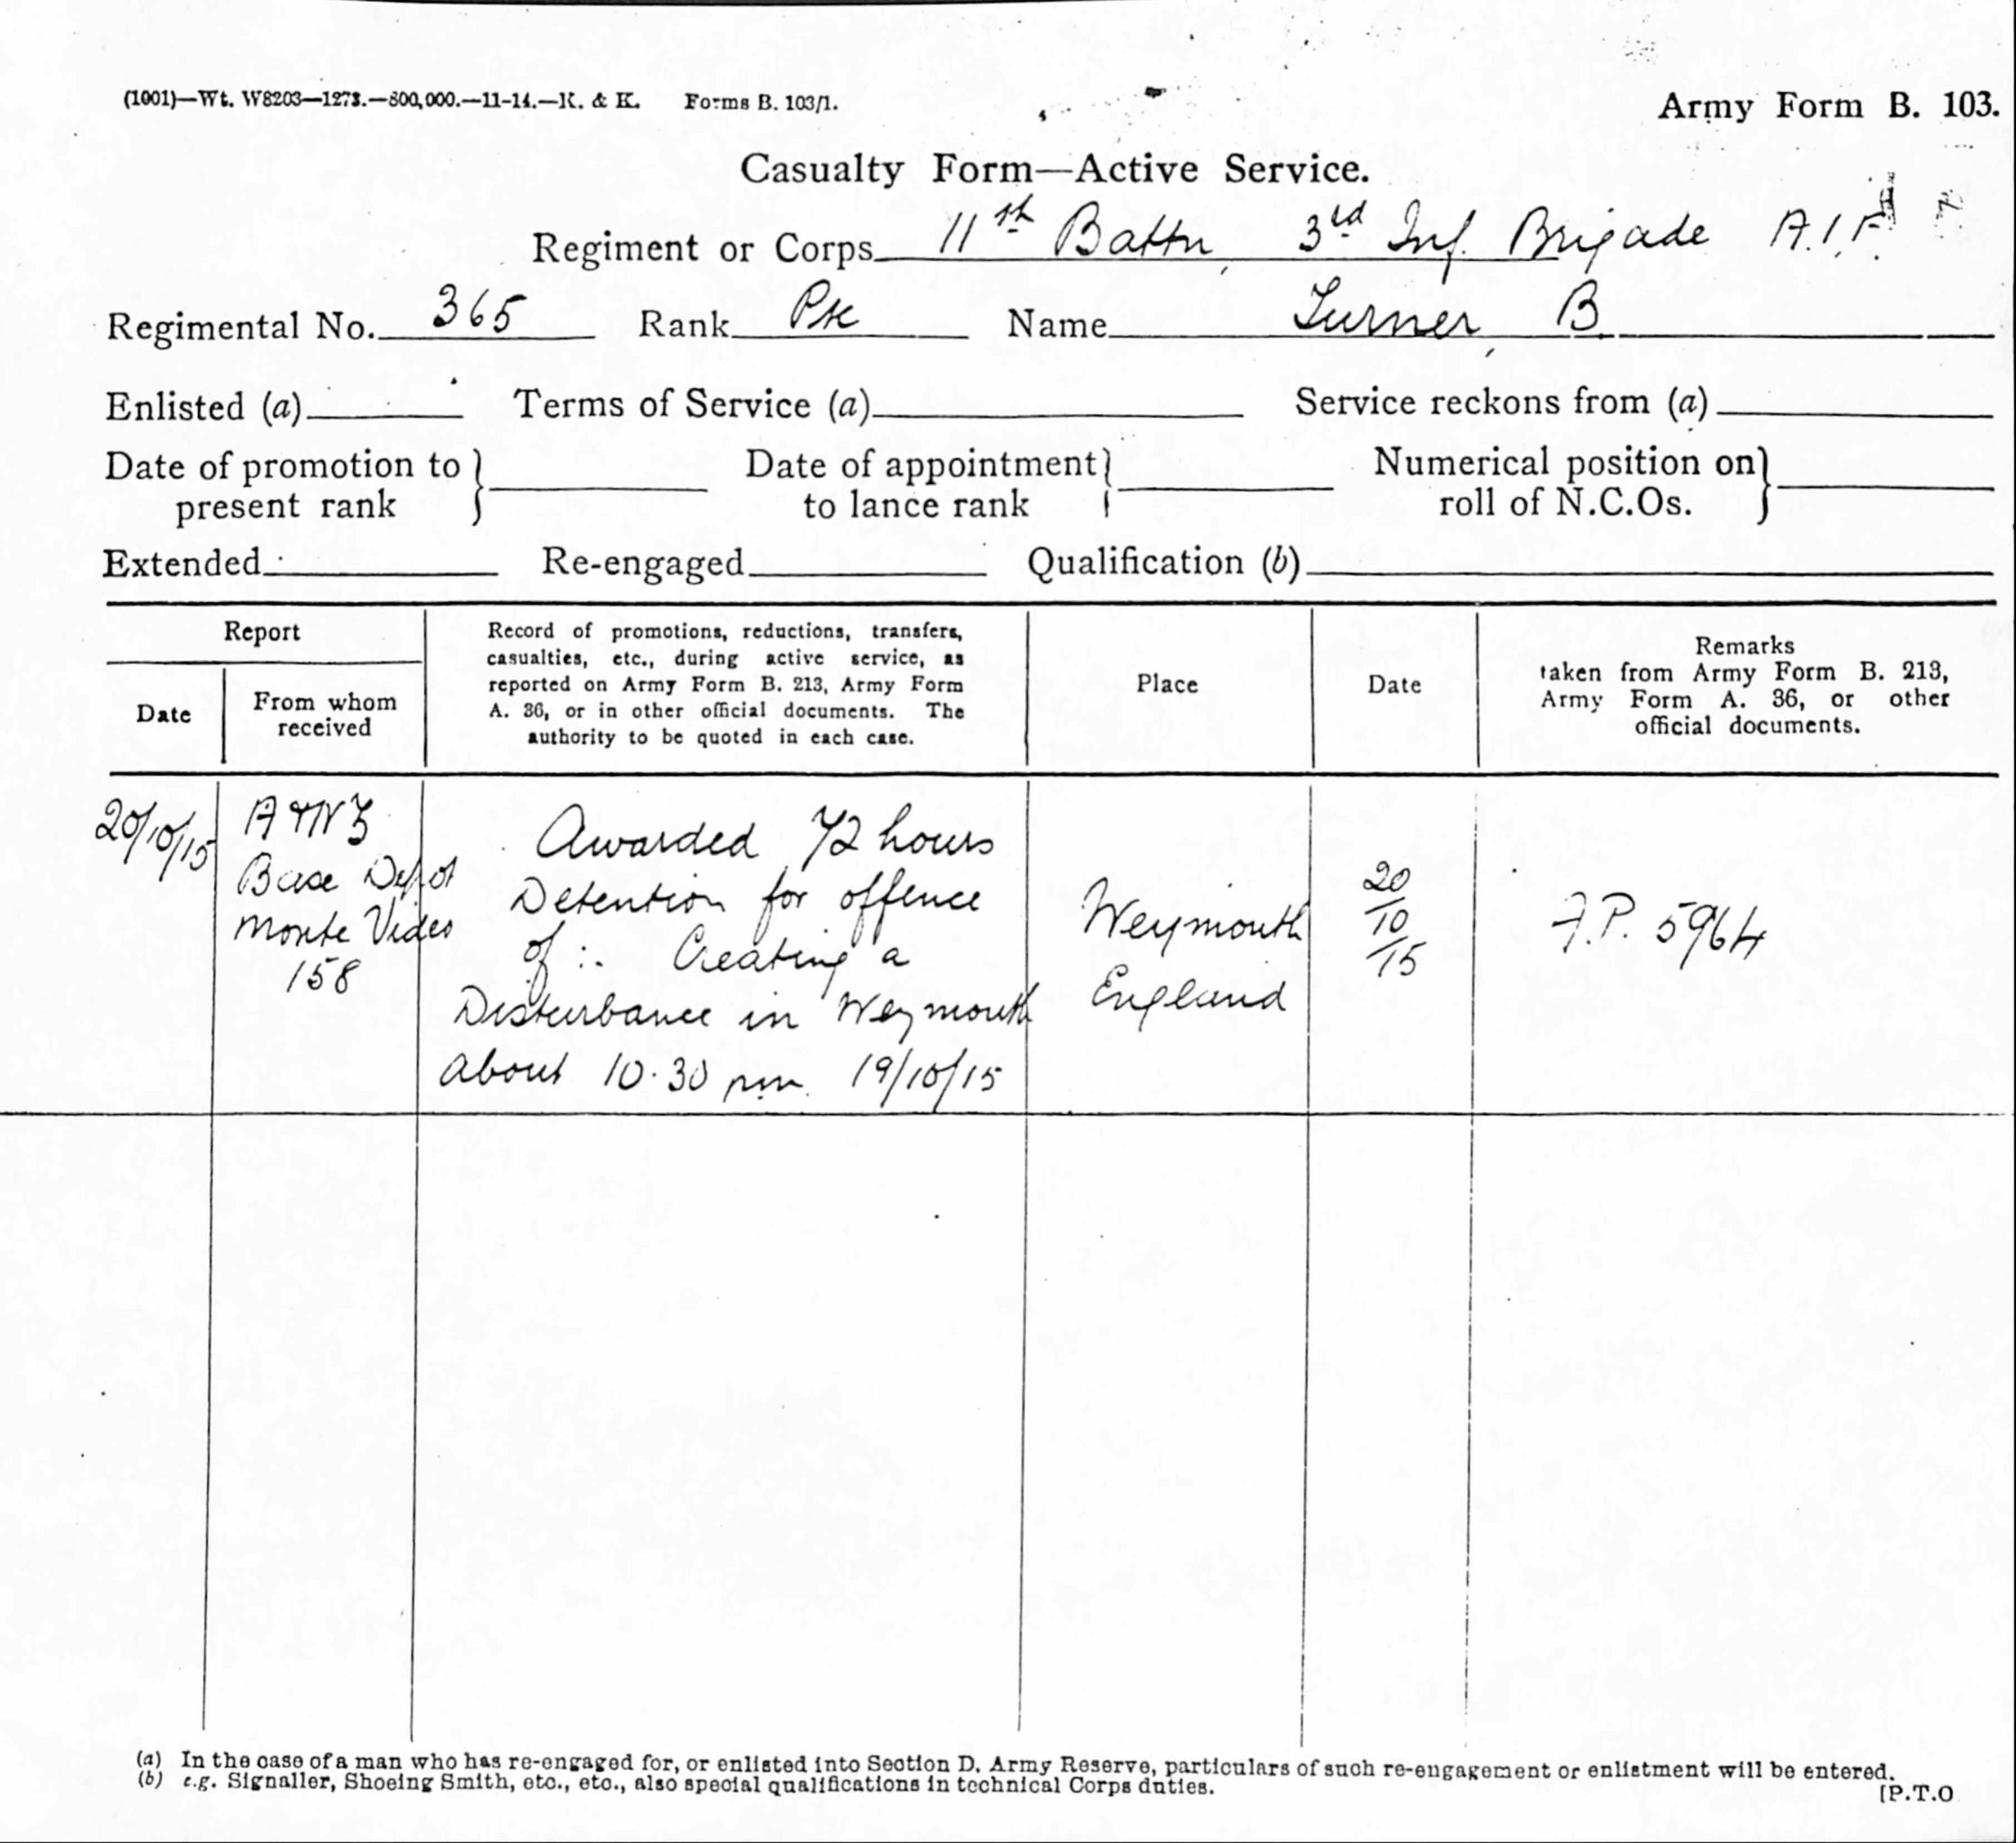 (1001)—Wt. W8203—1273.—800,000.—11-14.—K. & K. Forms B. 103/1.
Army Form B. 103.
Casualty Form—Active Service.
Regiment or Corps 11th Battn, 3rd Inf. Brigade A.I.F.
Regimental No. 365 Rank Pte Name Turner, B
Enlisted (a) Terms of Service (a) Service reckons from (a)
Date of promotion to present rank } Date of appointment to lance rank } Numerical position on roll of N.C.Os. }
Extended Re-engaged Qualification (b)
Report
Date
From whom
received
Record of promotions, reductions, transfers,
casualties, etc., during active service, as
reported on Army Form B. 213, Army Form
A. 36, or in other official documents. The
authority to be quoted in each case.
Place
Date
Remarks
taken from Army Form B. 213,
Army Form A. 36, or other
official documents.
20/10/15
A & NZ
Base Depot
Monte Video
158
Awarded 72 hours
Detention for offence
of :- Creating a
Disturbance in Weymouth
about 10.30 pm. 19/10/15
Weymouth
England
20
/10
/15
F.P. 5964
(a) In the case of a man who has re-engaged for, or enlisted into Section D. Army Reserve, particulars of such re-engagement or enlistment will be entered.
(b) e.g. Signaller, Shoeing Smith, etc., etc., also special qualifications in technical Corps duties.
[P.T.O